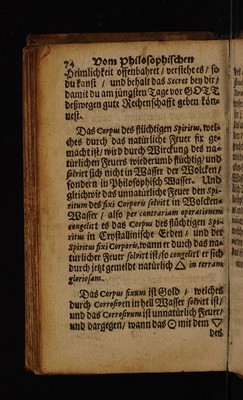 74 Vom Philosophischen
Heimlichkeit offenbahret/ verstehe es/ so
du kanst / und behalt das Secret bey dir/
damit du am jüngsten Tage vor GOTT
deßwegen gute Rechenschafft geben kön-
nest.
Das Corpus des flüchtigen Spiritus, wel-
ches durch das natürliche Feuer fix ge-
macht ist/ wird durch Wirckung des na-
türlichen Feuers wiederumb flüchtig/ und
solvirt sich nicht in Wasser der Wolcken/
sondern in Philosophisch Wasser. Und
gleichwie das unnatürliche Feuer den Spi-
ritum des fixi Corporis solvirt in Wolcken-
Wasser / also per contrariam operationem
congelirt es das Corpus des flüchtigen Spi-
ritus in Crystallinische Erden/ und der
Spiritus fixi Corporis, wann er durch das na-
türlicher Feuer solvirt ist/ so congelirt er sich
durch jetzt gemeldt natürlich △ in terram
gloriosam.
Das Corpus fixum ist Gold / welches
durch Corrosiven in hell Wasser solvirt ist/
und das Corrosivum ist unnatürlich Feuer/
und dargegen/ wann das ☉ mit dem ▽
des